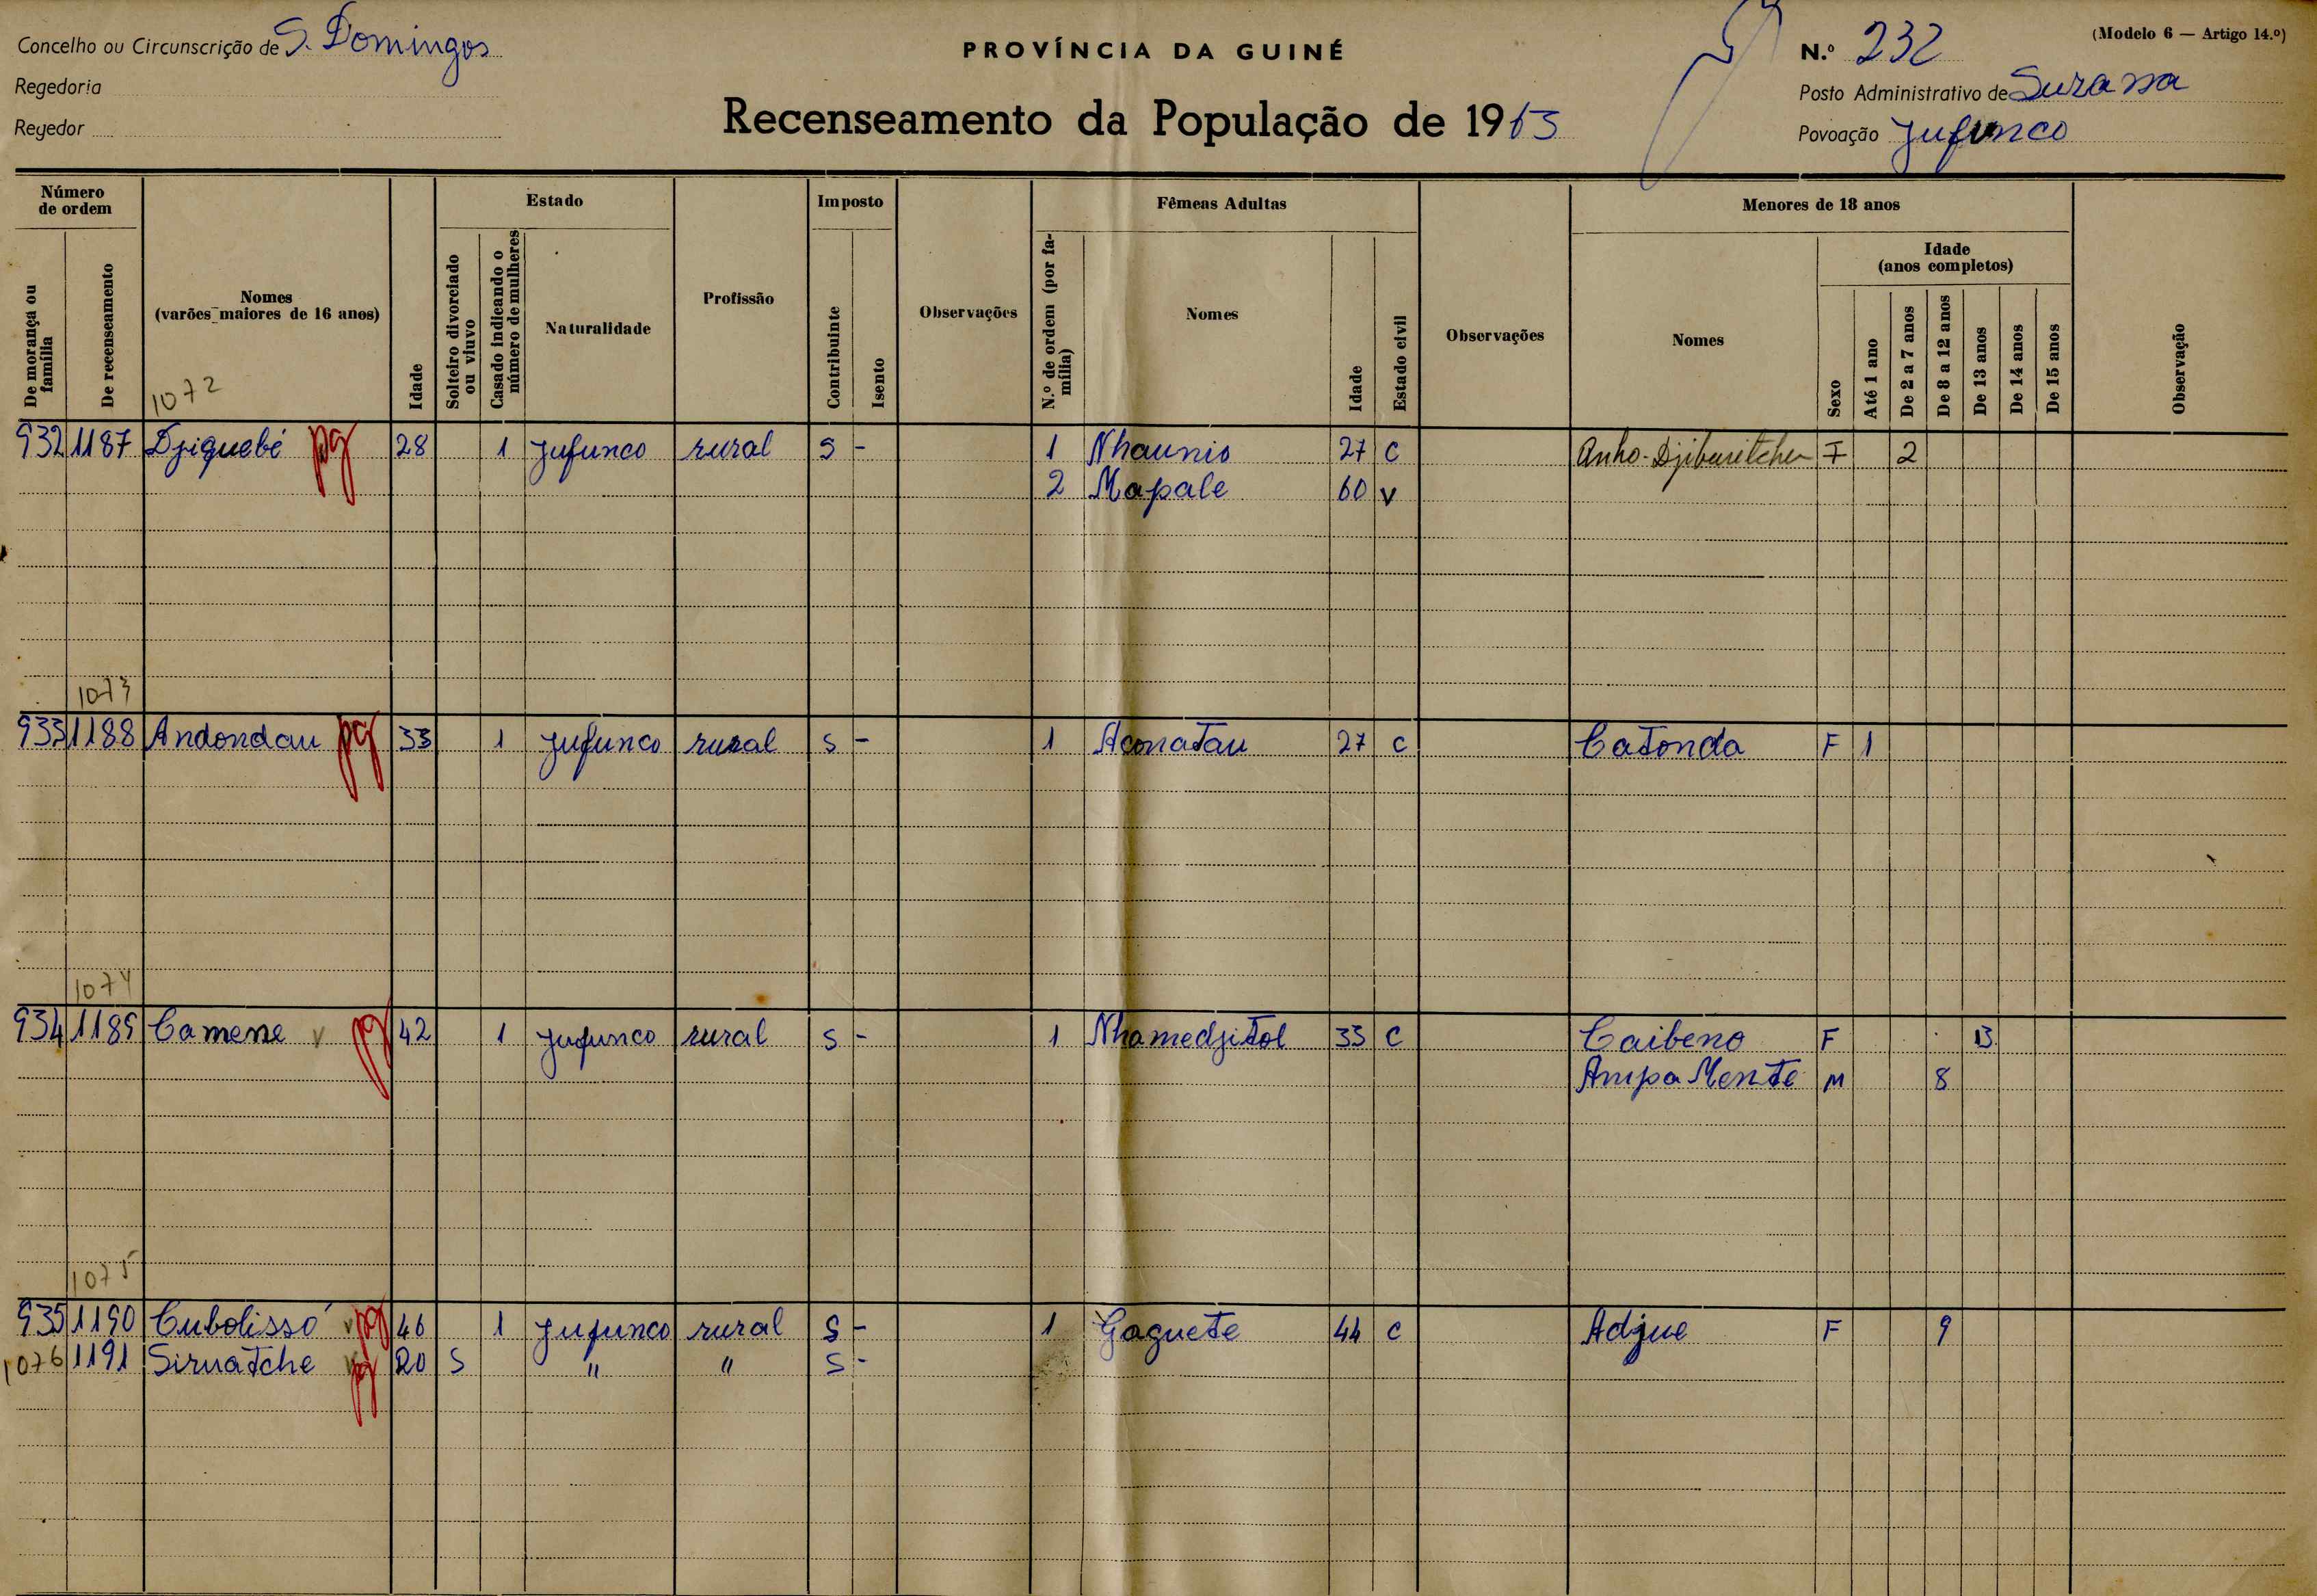 Concelho ou Circunscrição de S. Domingos
PROVÍNCIA DA GUINÉ
N.º 232
(Modelo 6 — Artigo 14.º)
Regedoria
Posto Administrativo de Suzana
Regedor
Recenseamento da População de 1963
Povoação Jufunco
Número de ordem
Estado
Imposto
Fêmeas Adultas
Menores de 18 anos
De morança ou família
De recenseamento
Nomes
(varões maiores de 16 anos)
Idade
Solteiro divorciado ou viuvo
Casado indicando o número de mulheres
Naturalidade
Profissão
Contribuinte
Isento
Observações
N.º de ordem (por família)
Nomes
Idade
Estado civil
Observações
Nomes
Sexo
Idade
(anos completos)
Até 1 ano
De 2 a 7 anos
De 8 a 12 anos
De 13 anos
De 14 anos
De 15 anos
Observação
1072
932 1187 Djiguebé pg 28 1 Jufunco rural S - 1 Nhaunio 27 C F 2
2 Mapale 60 V
1073
933 1188 Andondau pg 33 1 Jufunco rural S - 1 Aconatau 27 C Catonda F 1
1074
934 1189 Camene v pg 42 1 Jufunco rural S - 1 Nhamedjitol 33 C Caibeno F 13
Ampa Mente M 8
1075
935 1190 Cubolissó v pg 46 1 Jufunco rural S - 1 Gaguete 44 C Adjue F 9
1076 1191 Siruatche v pg 20 S " " S -